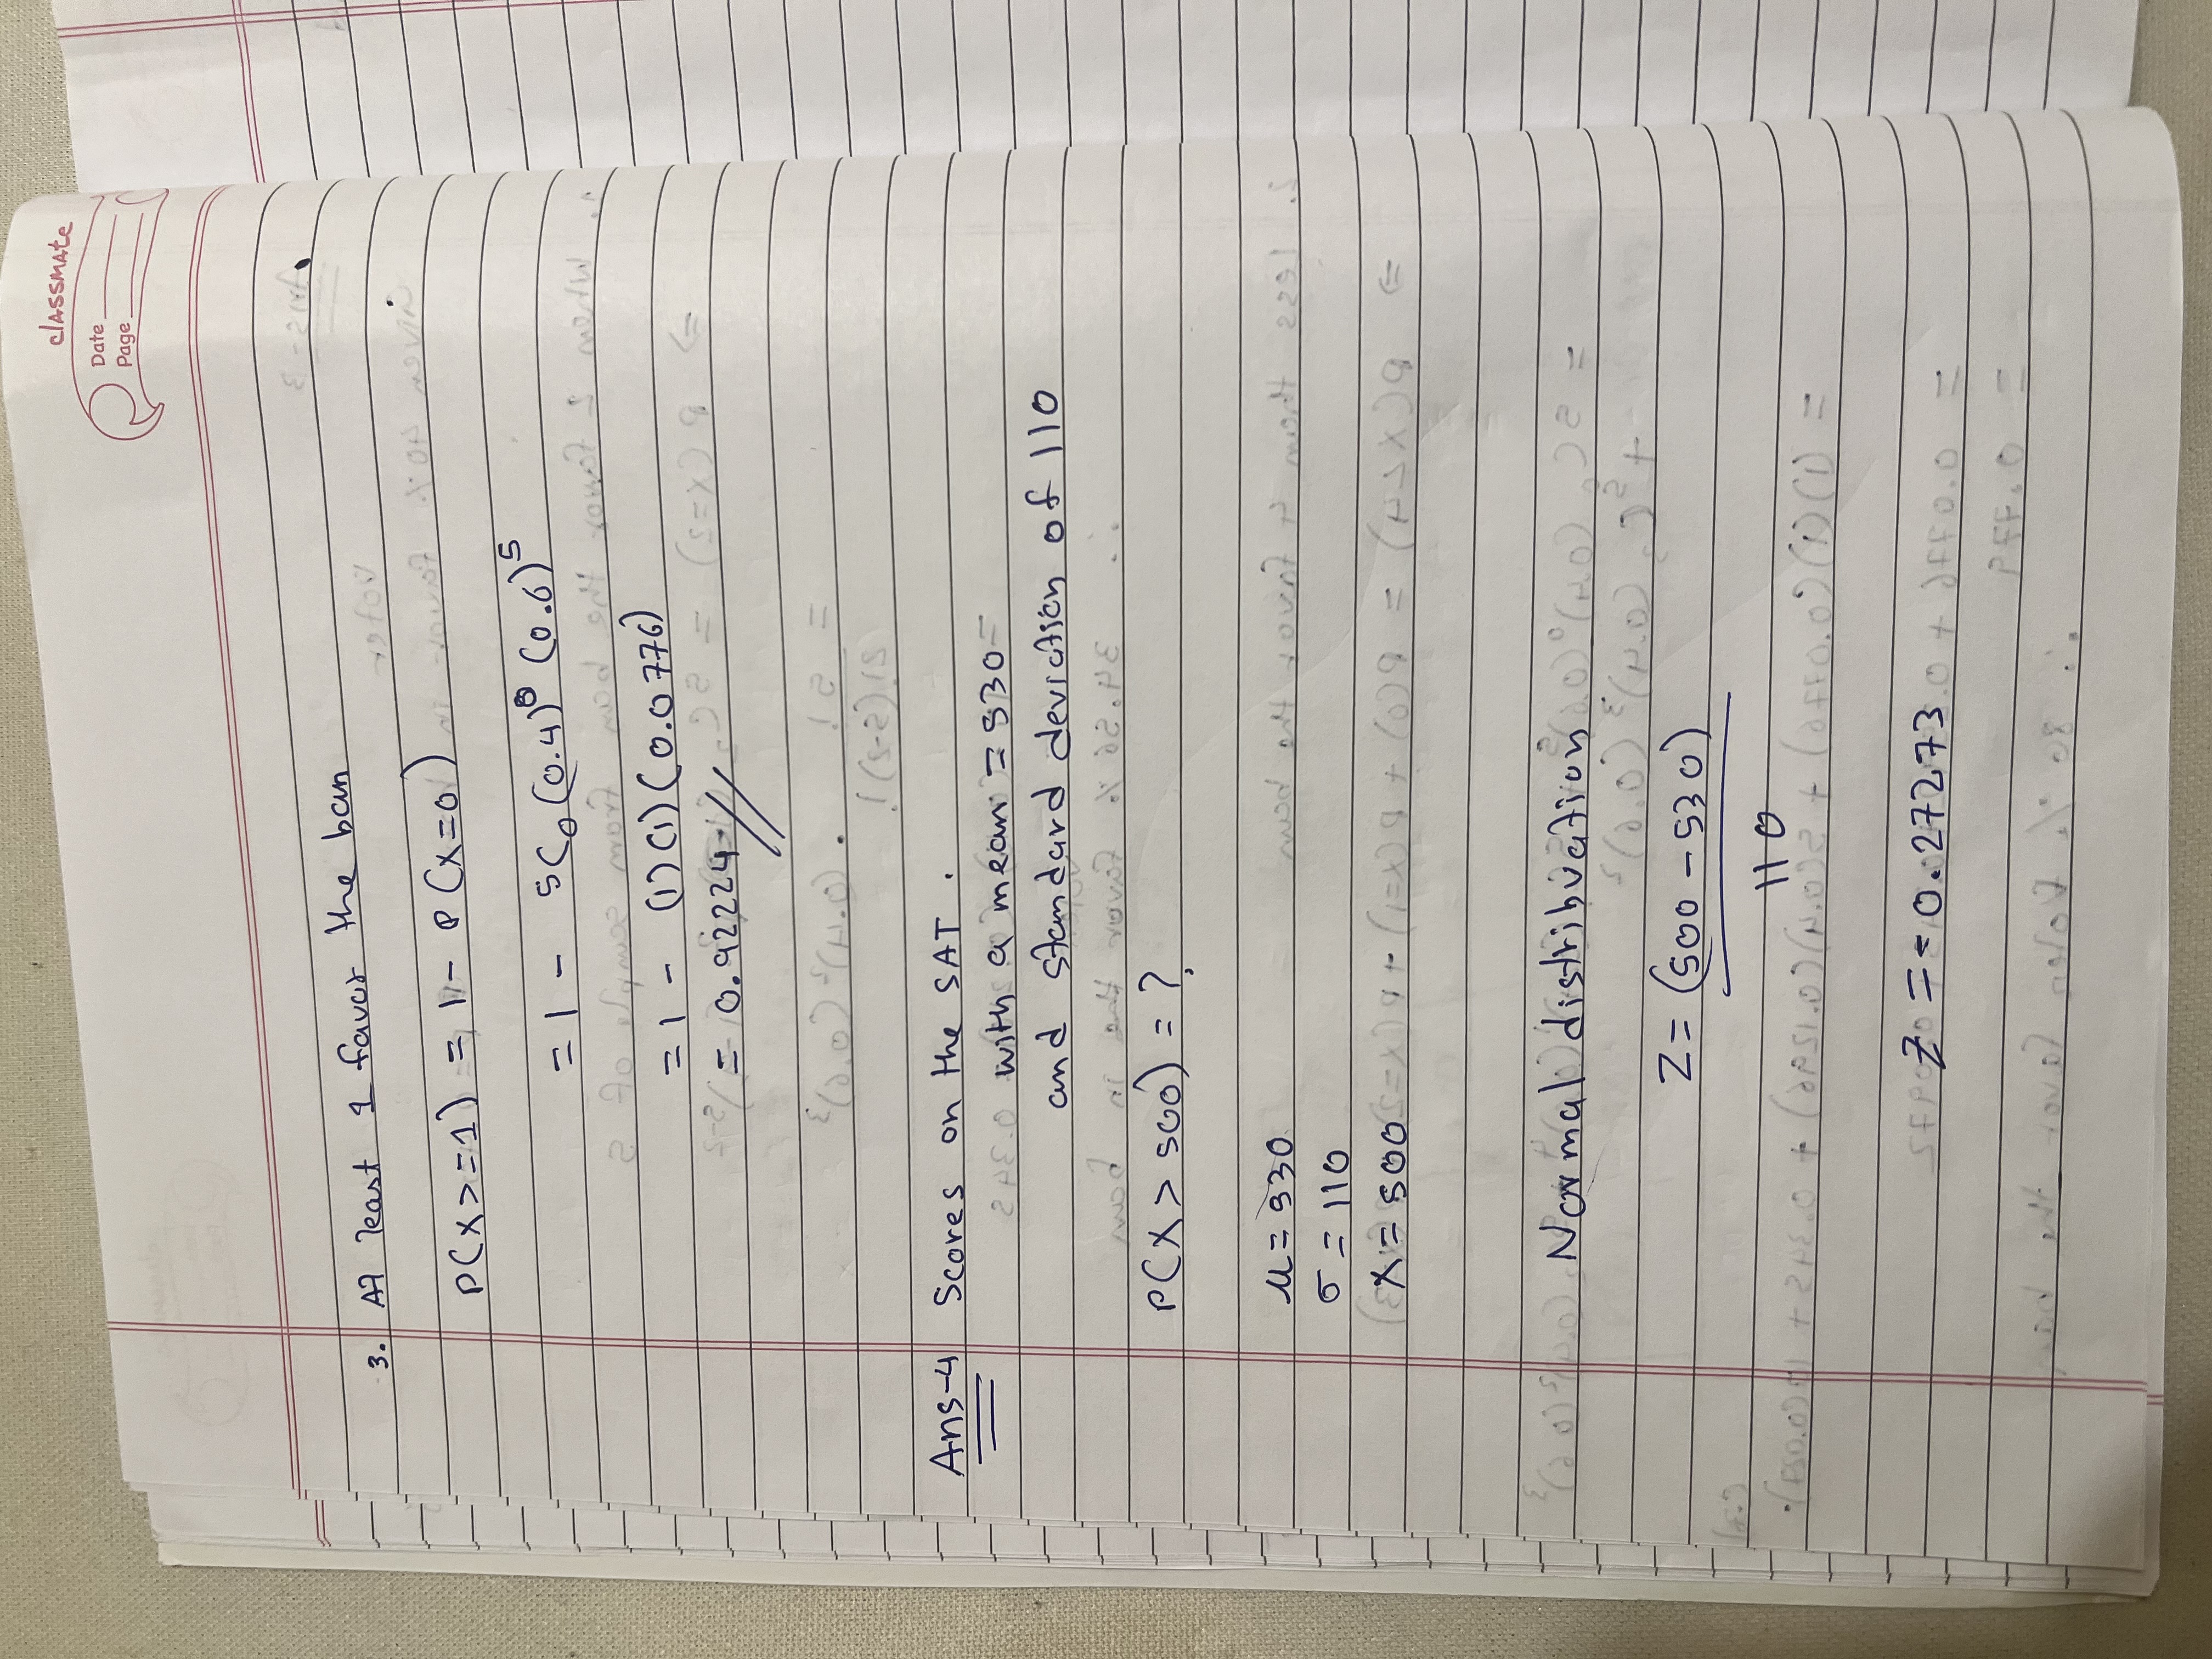 classmate
Date
Page
3. At least 1 favor the ban
P(X>=1) = 1 - P(X=0)
= 1 - 5C0 (0.4)^0 (0.6)^5
= 1 - (1)(1)(0.0776)
= 0.92224 //
Ans-4 Scores on the SAT .
with a mean = 530
and standard deviation of 110
P(X > 500) = ?
μ = 530
σ = 110
X = 500
Normal distribuation
Z = (500 - 530)
110
Z = - 0.27273